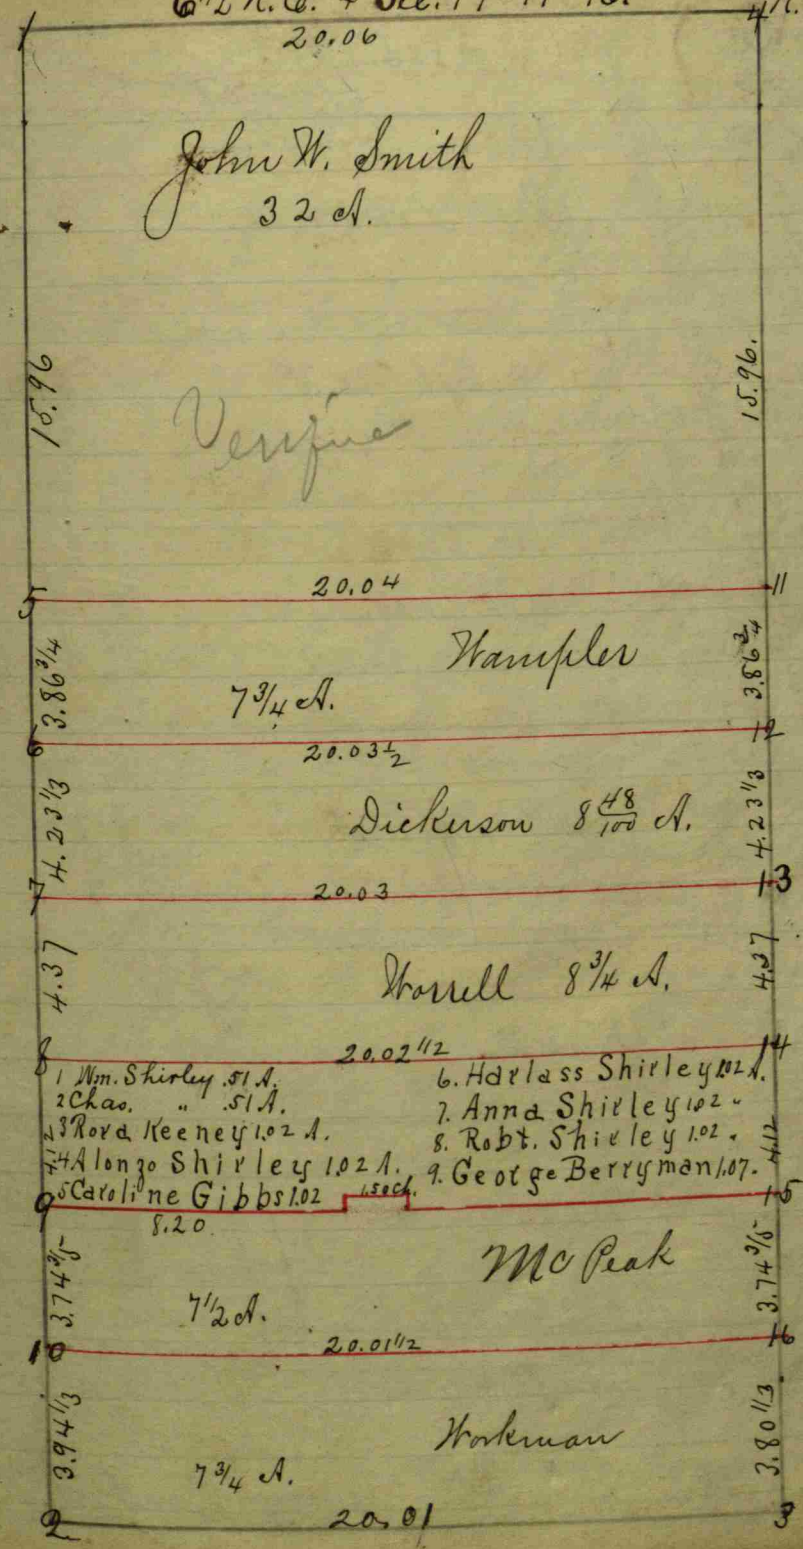 Sec. 17
1 4
20.06
John W. Smith
32 A.
15.96 15.96.
20.04
5 11
Wampler
3.86 3/4 7 3/4 A. 3.86 3/4
6 12
20.03 1/2
4.23 1/3 Dickerson 8 48/100 A. 4.23 1/3
7 20.03 13
4.37 Worrell 8 3/4 A. 4.37
8 20.02 1/2 14
1 Wm. Shirley .51 A.
2 Chas. " .51 A.
3 Rova Keeney 1.02 A.
4 Alonzo Shirley 1.02 A.
5 Caroline Gibbs 1.02
6. Harlass Shirley 1.02 A.
7. Anna Shirley 1.02 "
8. Robt. Shirley 1.02 .
9. George Berryman 1.07.
4.12
9 1.50 Ch. 15
8.20
McPeak
3.74 3/5 7 1/2 A. 3.74 3/5
10 20.01 1/2 16
Workman
3.94 1/3 7 3/4 A. 3.80 1/3
2 20.01 3